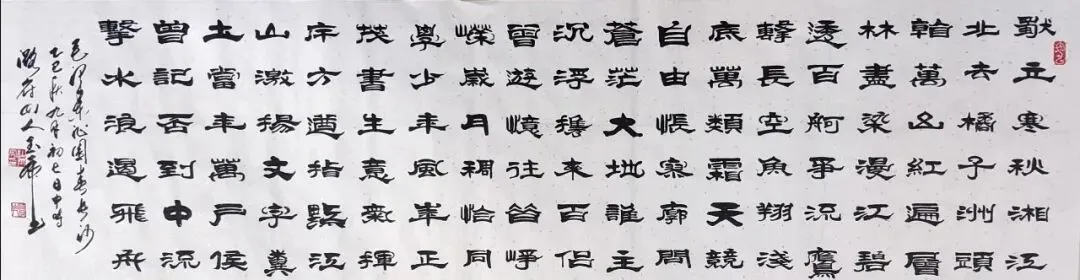 獨立寒秋湘江
北去橘子洲頭
看萬山紅遍層
林盡染漫江碧
透百舸爭流鷹
擊長空魚翔淺
底萬類霜天競
自由悵寥廓問
蒼茫大地誰主
沉浮攜來百侶
曾遊憶往昔崢
嶸歲月稠恰同
學少年風華正
茂書生意氣揮
斥方遒指點江
山激揚文字糞
土當年萬戶侯
曾記否到中流
擊水浪遏飛舟
毛澤東沁園春長沙
乙巳秋九月初七日中
山人